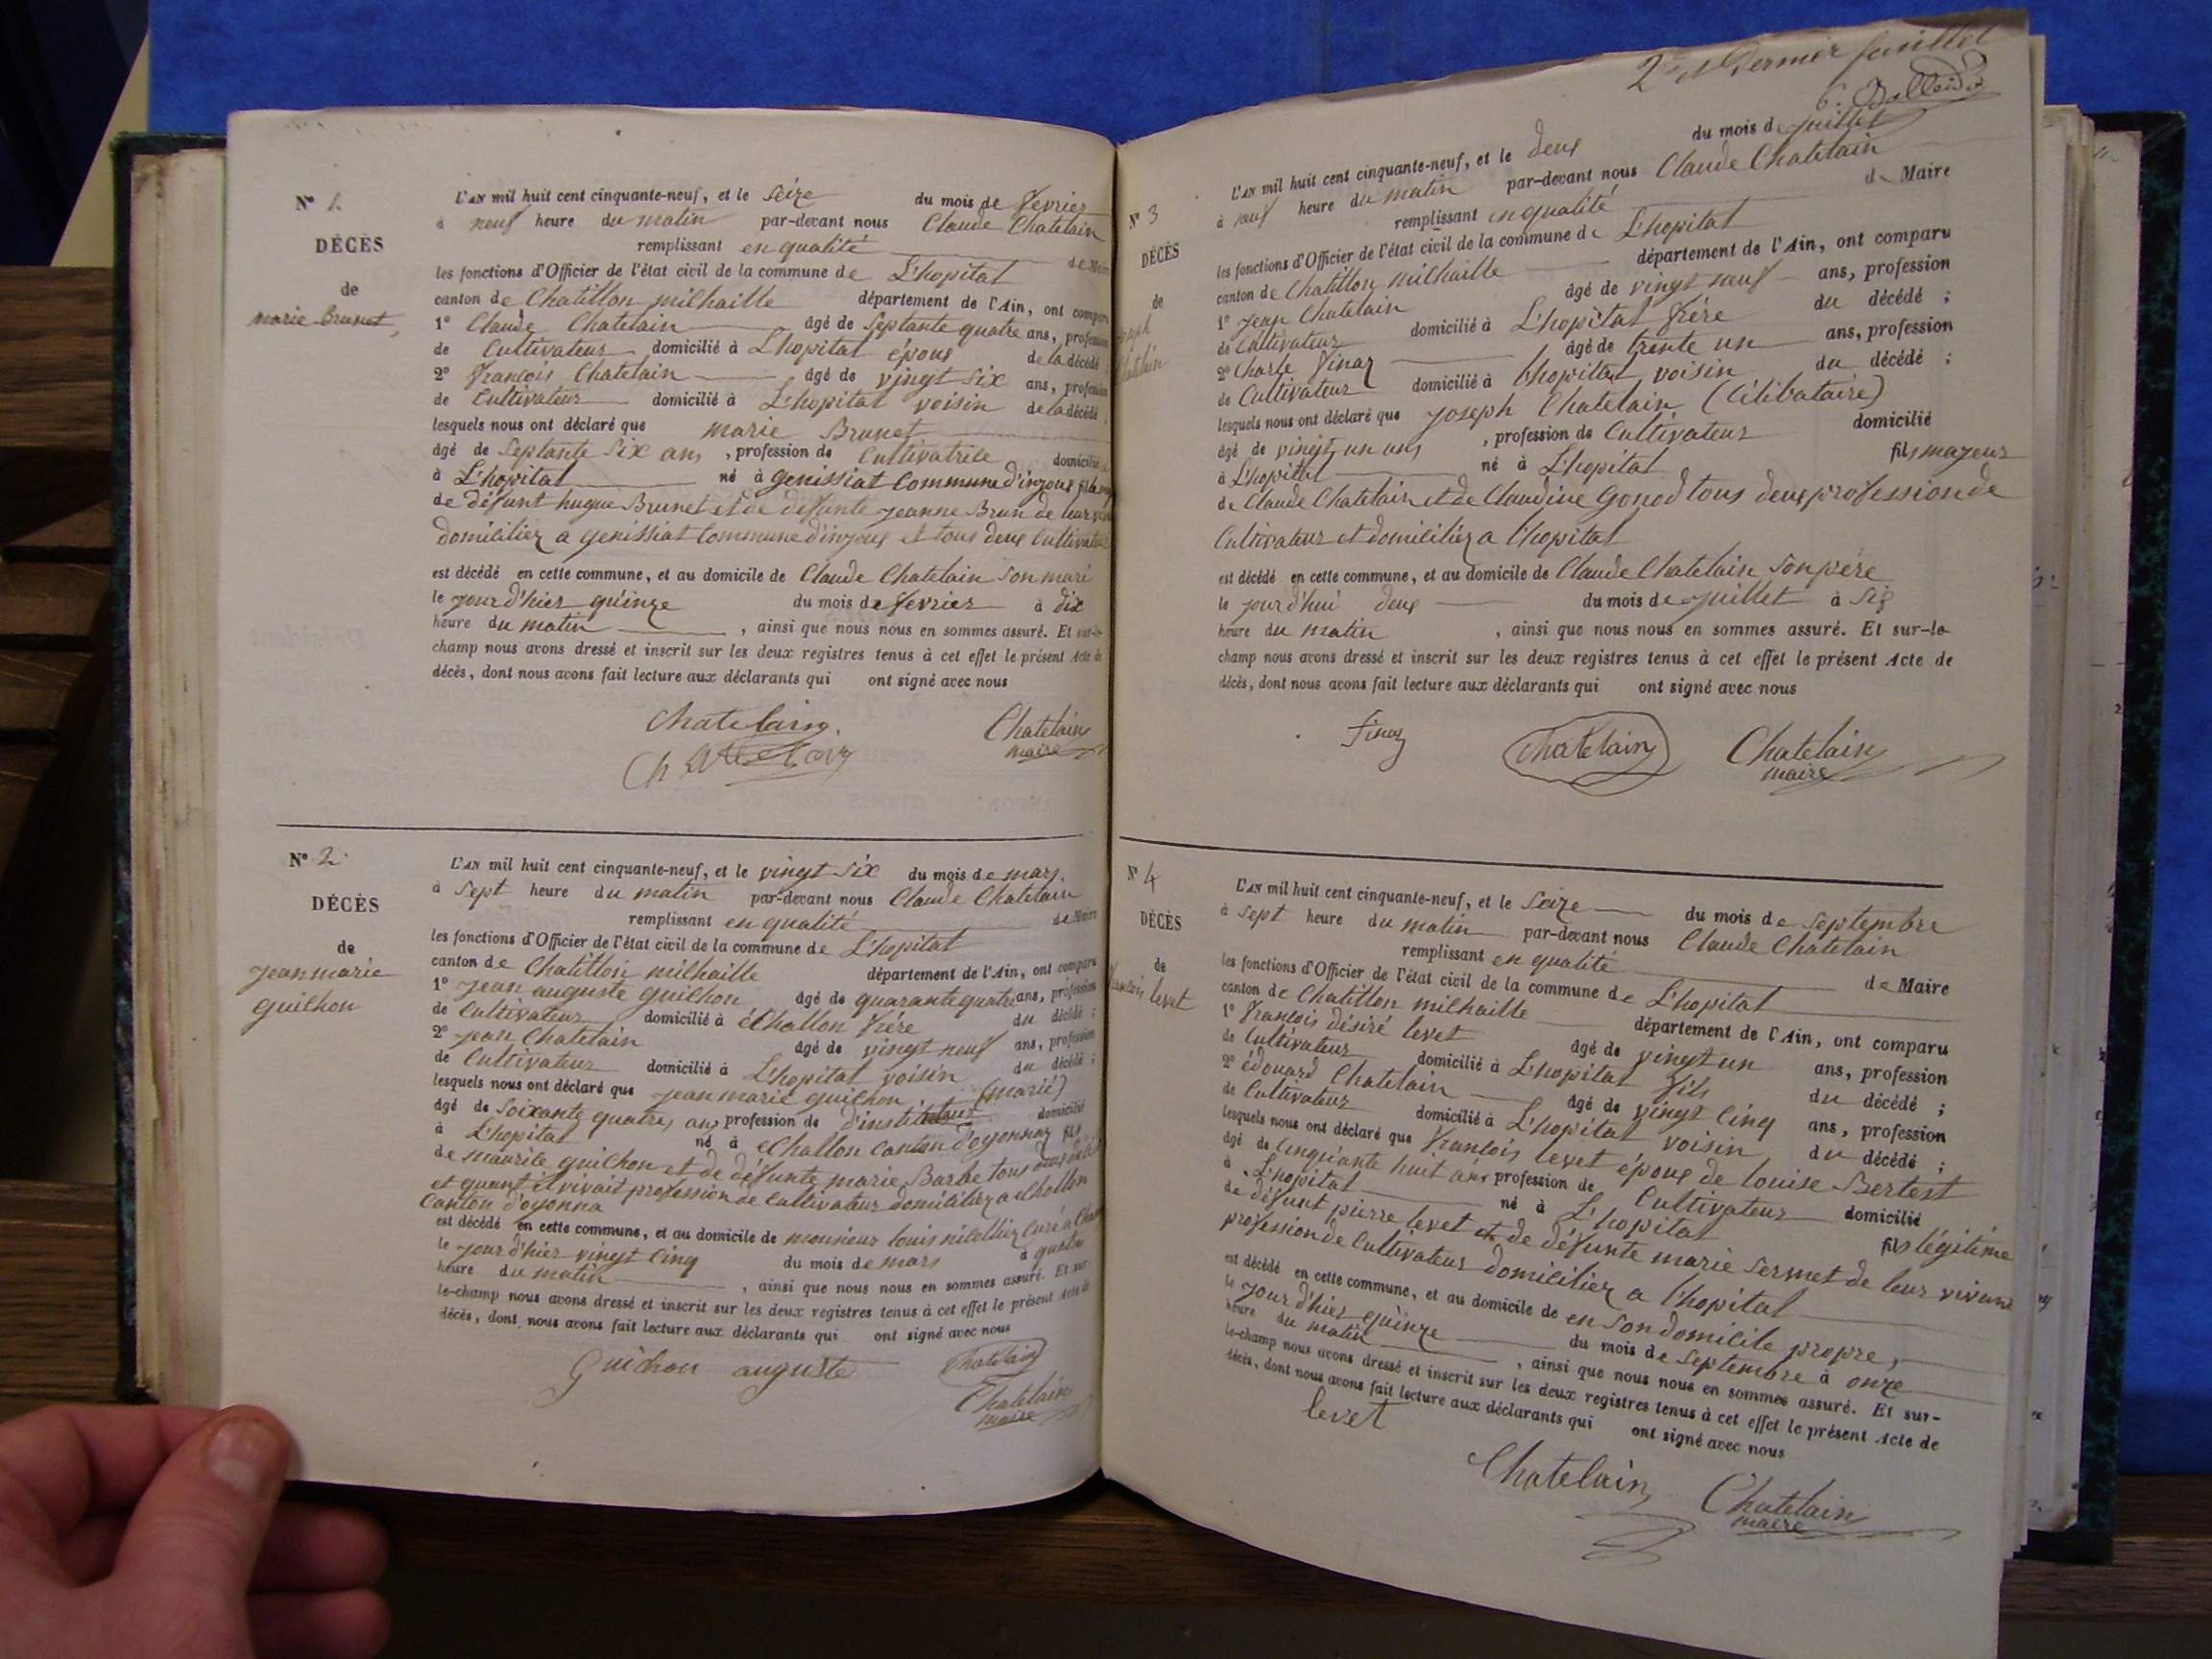 N° 1.
DÉCÈS
de
marie Brunet,
L'AN mil huit cent cinquante-neuf, et le seize du mois de fevrier
à neuf heure du matin par-devant nous Claude Chatelain
remplissant en qualité de Maire
les fonctions d'Officier de l'état civil de la commune de L'hopital
canton de Chatillon milhaille département de l'Ain, ont comparu
1° Claude Chatelain âgé de septante quatre ans, profession
de Cultivateur domicilié à L'hopital épous de la décédé
2° francois Chatelain âgé de vingt six ans, profession
de Cultivateur domicilié à L'hopital voisin de la décédé
lesquels nous ont déclaré que marie Brunet
âgé de septante six ans, profession de Cultivatrice domicilié
à L'hopital né à genissiat Commune d'injoux
de défunt hugue Brunet et de défunte jeanne Brun de leur
domicilier a genissiat Commune d'injoux et tous deux Cultivateur
est décédé en cette commune, et au domicile de Claude Chatelain son mari
le jour d'hier quinze du mois de fevrier à dix
heure du matin, ainsi que nous nous en sommes assuré. Et sur-le-
champ nous avons dressé et inscrit sur les deux registres tenus à cet effet le présent Acte de
décès, dont nous avons fait lecture aux déclarants qui ont signé avec nous
Chatelain. Chatelain
maire
N° 2.
DÉCÈS
de
jean marie
guichon
L'AN mil huit cent cinquante-neuf, et le vingt six du mois de mars.
à sept heure du matin par-devant nous Claude Chatelain
remplissant en qualité de Maire
les fonctions d'Officier de l'état civil de la commune de L'hopital
canton de Chatillon milhaille département de l'Ain, ont comparu
1° jean auguste guichon âgé de quarante quatre ans, profession
de Cultivateur domicilié à échallon frére du décédé ;
2° jean Chatelain âgé de vingt neuf ans, profession
de Cultivateur domicilié à L'hopital voisin du décédé ;
lesquels nous ont déclaré que jean marie guichon (marié)
âgé de soixante quatre ans profession de d'instituteur domicilié
à L'hopital né à echallon Canton d'oyonnaz fils
de maurile guichon et de défunte marie Barbe tous
et quant il vivait profession de Cultivateur domicilier a echallon
Canton d'oyonna
est décédé en cette commune, et au domicile de monsieur louis nicollier curé a
le jour d'hier vingt cinq du mois de mars à quatre
heure du matin, ainsi que nous nous en sommes assuré. Et sur-
le-champ nous avons dressé et inscrit sur les deux registres tenus à cet effet le présent Acte de
décès, dont nous avons fait lecture aux déclarants qui ont signé avec nous
Guichon auguste Chatelain
Chatelain
maire
2e et dernier feuillet
N° 3
DÉCÈS
de
joseph
Chatelain
L'AN mil huit cent cinquante-neuf, et le deux du mois de juillet
à neuf heure du matin par-devant nous Claude Chatelain
remplissant en qualité de Maire
les fonctions d'Officier de l'état civil de la commune de L'hopital
canton de Chatillon milhaille département de l'Ain, ont comparu
1° jean Chatelain âgé de vingt neuf ans, profession
de Cultivateur domicilié à L'hopital frére du décédé ;
2° Charle finaz âgé de trente un ans, profession
de Cultivateur domicilié à lhopital voisin du décédé ;
lesquels nous ont déclaré que joseph Chatelain (Célibataire)
âgé de vingt un ans, profession de Cultivateur domicilié
à L'hopital né à L'hopital fils mayeur
de Claude Chatelain et de Claudine gonod tous deux profession de
Cultivateur et domicilier a lhopital
est décédé en cette commune, et au domicile de Claude Chatelain son pére
le jour d'hui deux du mois de juillet à six
heure du matin, ainsi que nous nous en sommes assuré. Et sur-le-
champ nous avons dressé et inscrit sur les deux registres tenus à cet effet le présent Acte de
décès, dont nous avons fait lecture aux déclarants qui ont signé avec nous
finaz Chatelain Chatelain
maire
N° 4
DÉCÈS
de
francois levet
L'AN mil huit cent cinquante-neuf, et le seize du mois de septembre
à sept heure du matin par-devant nous Claude Chatelain
remplissant en qualité de Maire
les fonctions d'Officier de l'état civil de la commune de L'hopital
canton de Chatillon milhaille département de l'Ain, ont comparu
1° francois désiré levet âgé de vingt un ans, profession
de Cultivateur domicilié à L'hopital fils du décédé ;
2° édouard Chatelain âgé de vingt cinq ans, profession
de Cultivateur domicilié à L'hopital voisin du décédé ;
lesquels nous ont déclaré que francois levet épous de louise Bertest
âgé de cinquante huit ans profession de Cultivateur domicilié
à L'hopital né à L'hopital fils légitime
de défunt pierre levet et de défunte marie sermet de leur vivant
profession de Cultivateur domicilier a lhopital
est décédé en cette commune, et au domicile de en son domicile propre,
le jour d'hier quinze du mois de septembre à onze
heure du matin, ainsi que nous nous en sommes assuré. Et sur-
le-champ nous avons dressé et inscrit sur les deux registres tenus à cet effet le présent Acte de
décès, dont nous avons fait lecture aux déclarants qui ont signé avec nous
levet
Chatelain Chatelain
maire